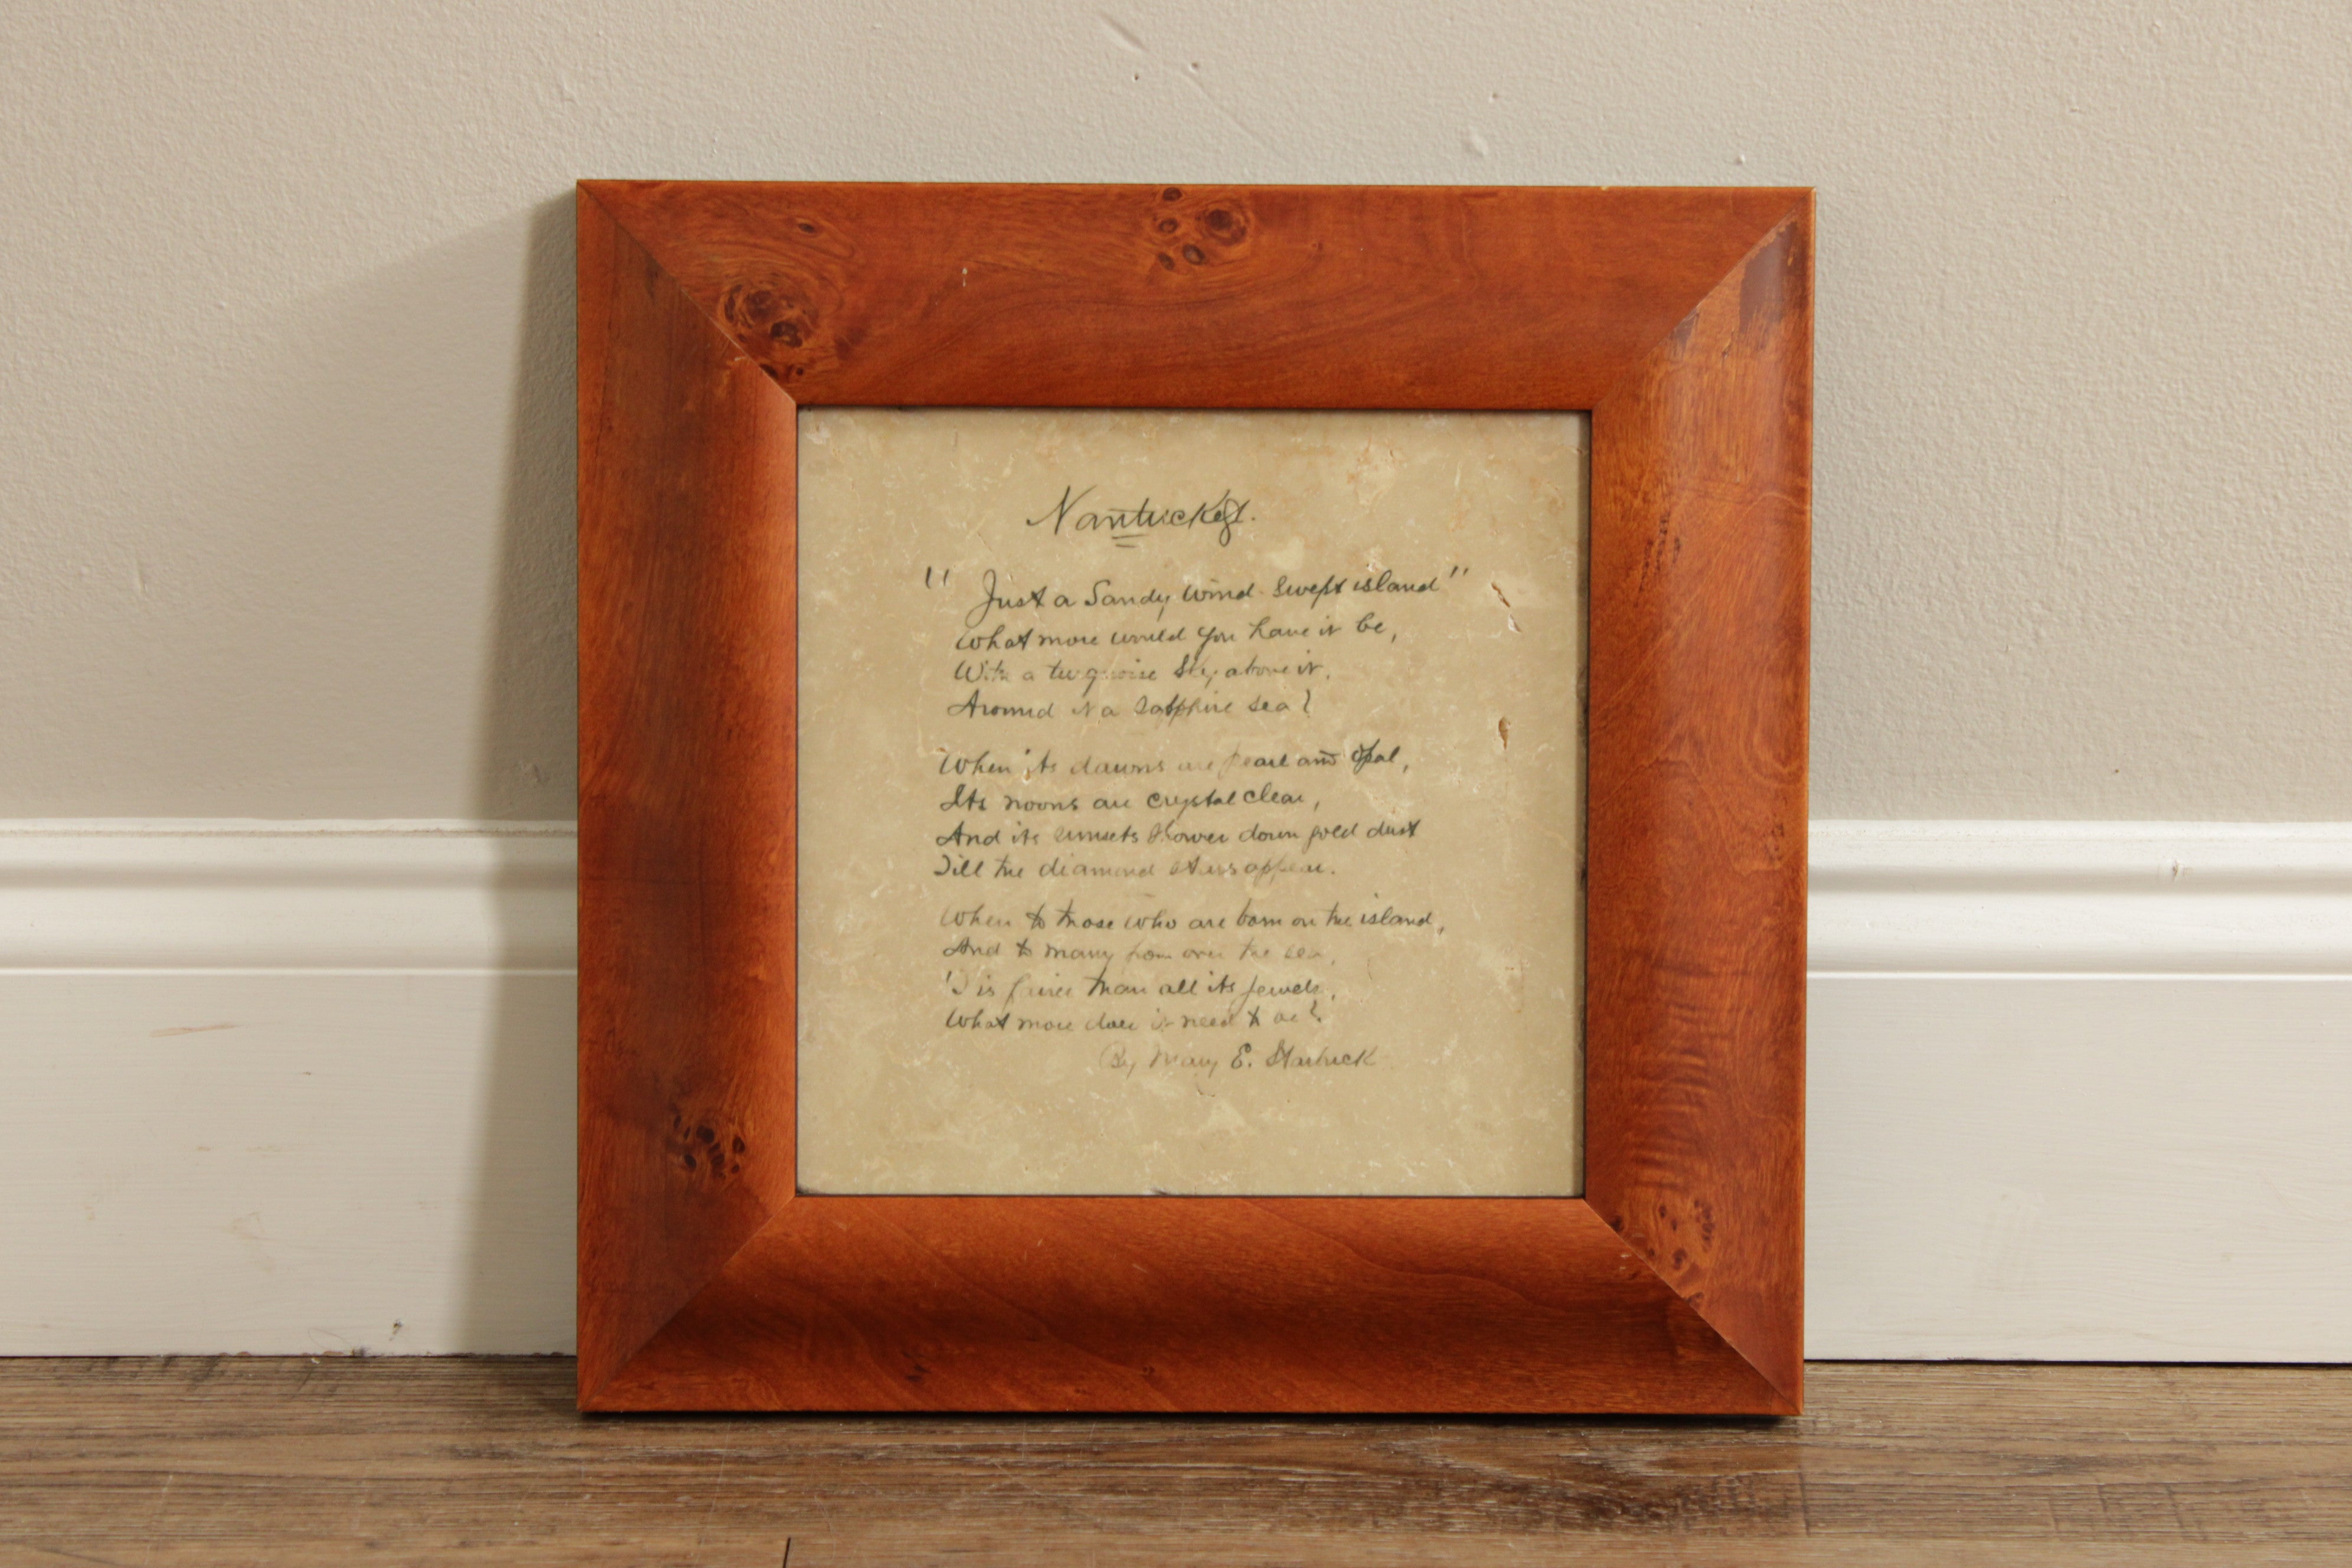 Nantucket.
"Just a Sandy Wind-Swept island"
What more would you have it be,
With a turquoise sky above it,
Around it a Sapphire sea?
When its dawns are pearl and opal,
Its noons are crystal clear,
And its sunsets shower down gold dust
Till the diamond stars appear.
When to those who are born on the island,
And to many from over the sea,
'Tis fairer than all its jewels,
What more does it need to be?
By Mary E. Starbuck